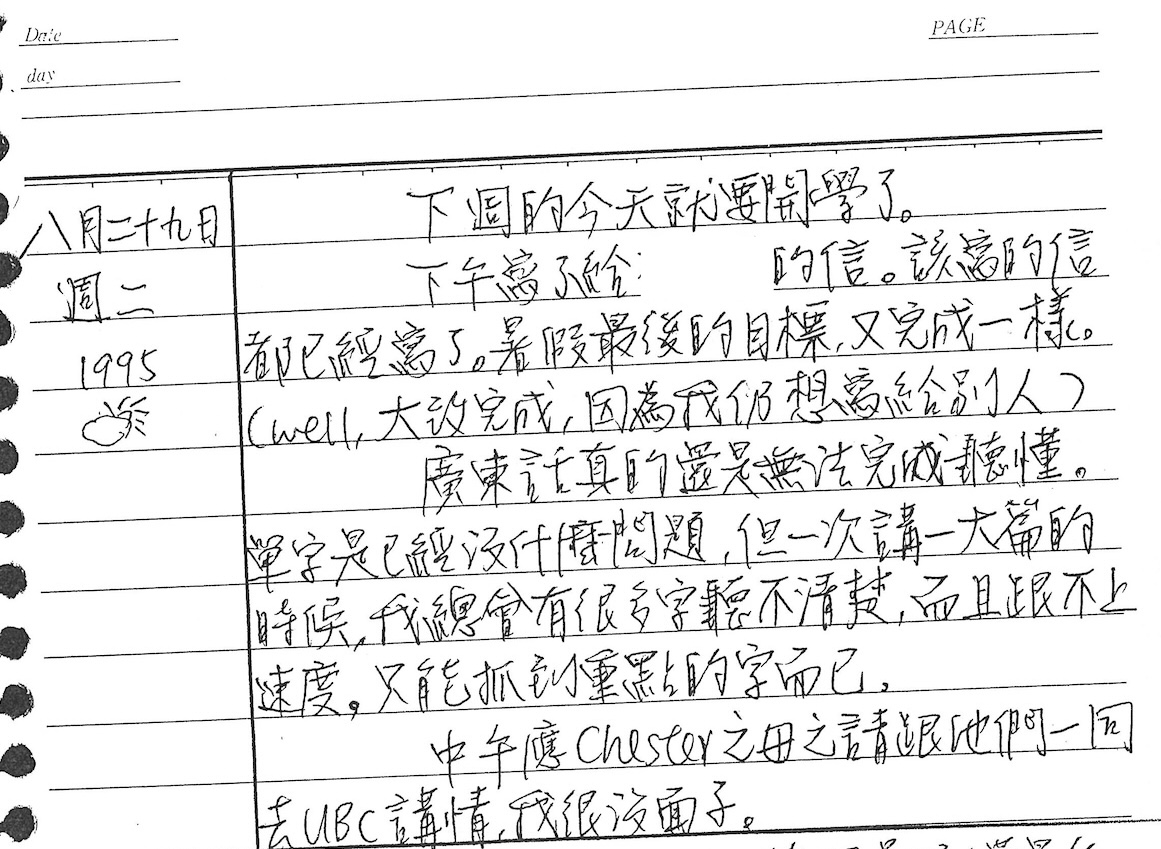 Date
PAGE
day
八月二十九日
週二
1995
下週的今天就要開學了。
下午寫了給 的信。該寫的信
都已經寫了。暑假最後的目標,又完成一樣。
(well, 大致完成,因為我仍想寫給別人)
廣東話真的還是無法完成聽懂。
單字是已經沒什麼問題,但一次講一大篇的
時候,我總會有很多字聽不清楚,而且跟不上
速度。只能抓到重點的字而已。
中午應Chester之母之請跟他們一同
去UBC講情,我很沒面子。